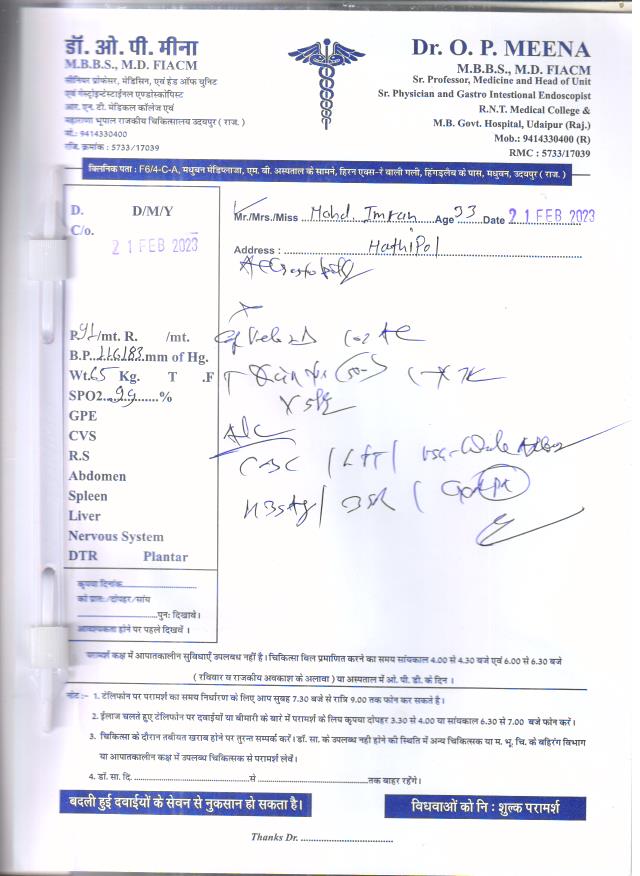 डॉ. ओ. पी. मीना
M.B.B.S., M.D. FIACM
सीनियर प्रोफेसर, मेडिसिन, एवं हेड ऑफ युनिट
एवं गेस्ट्रोइन्टेस्टाईनल एण्डोस्कोपिस्ट
आर. एन. टी. मेडिकल कॉलेज एवं
महाराणा भूपाल राजकीय चिकित्सालय उदयपुर ( राज. )
मो.: 9414330400
रजि. क्रमांक : 5733/17039
Dr. O. P. MEENA
M.B.B.S., M.D. FIACM
Sr. Professor, Medicine and Head of Unit
Sr. Physician and Gastro Intestional Endoscopist
R.N.T. Medical College &
M.B. Govt. Hospital, Udaipur (Raj.)
Mob.: 9414330400 (R)
RMC : 5733/17039
क्लिनिक पता : F6/4-C-A, मधुवन मेडिप्लाजा, एम. बी. अस्पताल के सामने, हिरन एक्स-रे वाली गली, हिंगडलैब के पास, मधुवन, उदयपुर ( राज. )
D. D/M/Y
C/o.
21 FEB 2023
Mr./Mrs./Miss Mohd. Imran Age 33 Date 21 FEB 2023
Address : Hathipol
P. 92/mt. R. /mt.
B.P. 116/83 mm of Hg.
Wt. 65 Kg. T .F
SPO2 99 %
GPE
CVS
R.S
Abdomen
Spleen
Liver
Nervous System
DTR Plantar
Adv
CBC / LFT /
HBsAg /
कृपया दिनांक
को प्रातः/दोपहर/सांय
पुनः दिखावें।
आवश्यकता होने पर पहले दिखवें ।
परामर्श कक्ष में आपातकालीन सुविधाएँ उपलब्ध नहीं है। चिकित्सा बिल प्रमाणित करने का समय सांयकाल 4.00 से 4.30 बजे एवं 6.00 से 6.30 बजे
( रविवार व राजकीय अवकाश के अलावा ) या अस्पताल में ओ. पी. डी. के दिन ।
नोट :- 1. टेलिफोन पर परामर्श का समय निर्धारण के लिए आप सुबह 7.30 बजे से रात्रि 9.00 तक फोन कर सकते है।
2. ईलाज चलते हुए टेलिफोन पर दवाईयों या बीमारी के बारे में परामर्श के लिए कृपया दोपहर 3.30 से 4.00 या सांयकाल 6.30 से 7.00 बजे फोन करें।
3. चिकित्सा के दौरान तबीयत खराब होने पर तुरन्त सम्पर्क करें। डॉ. सा. के उपलब्ध नही होने की स्थिति में अन्य चिकित्सक या म. भू. चि. के बहिरंग विभाग
या आपातकालीन कक्ष में उपलब्ध चिकित्सक से परामर्श लेवें।
4. डॉ. सा. दि. से तक बाहर रहेंगे।
बदली हुई दवाईयों के सेवन से नुकसान हो सकता है।
विधवाओं को नि : शुल्क परामर्श
Thanks Dr.